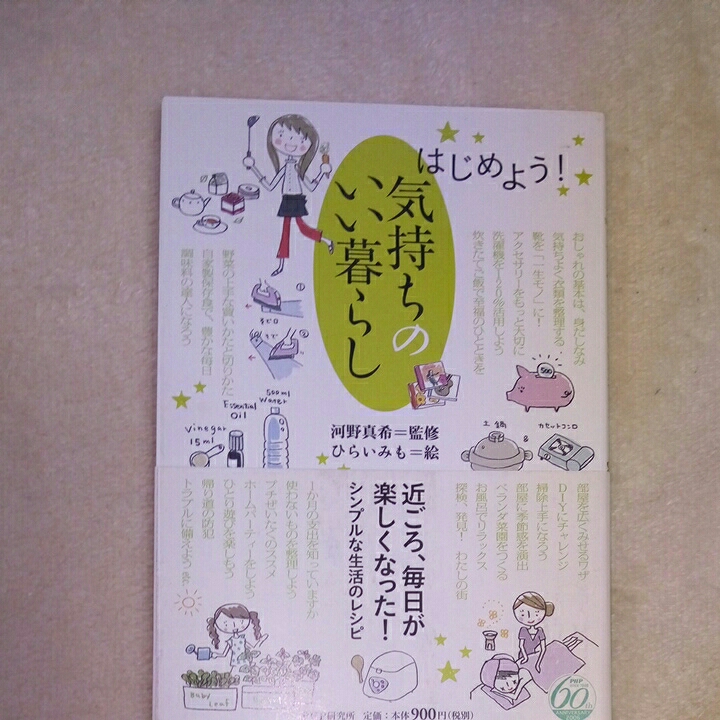 はじめよう!
気持ちの
いい暮らし
おしゃれの基本は、身だしなみ
気持ちよく衣類を整理する
靴を「一生モノ」に!
アクセサリーをもっと大切に
洗濯機を120%活用しよう
炊きたてご飯で幸福のひとときを
野菜の上手な買いかたと切りかた
自家製保存食で、豊かな毎日
調味料の達人になろう
1
2
500
500ml
Water
Essential
Oil
Vinegar
15ml
土鍋
&
カセットコンロ
河野真希=監修
ひらいみも=絵
近ごろ、毎日が
楽しくなった!
シンプルな生活のレシピ
部屋を広くみせるワザ
DIYにチャレンジ
掃除上手になろう
部屋に季節感を演出
ベランダ菜園をつくる
お風呂でリラックス
探検、発見!わたしの街
1か月の支出を知っていますか
使わないものを整理しよう
プチぜいたくのススメ
ホームパーティーをしよう
ひとり遊びを楽しもう
帰り道の防犯
トラブルに備えよう
Baby
Leaf
研究所 定価:本体900円(税別)
PHP
60th
ANNIVERSARY